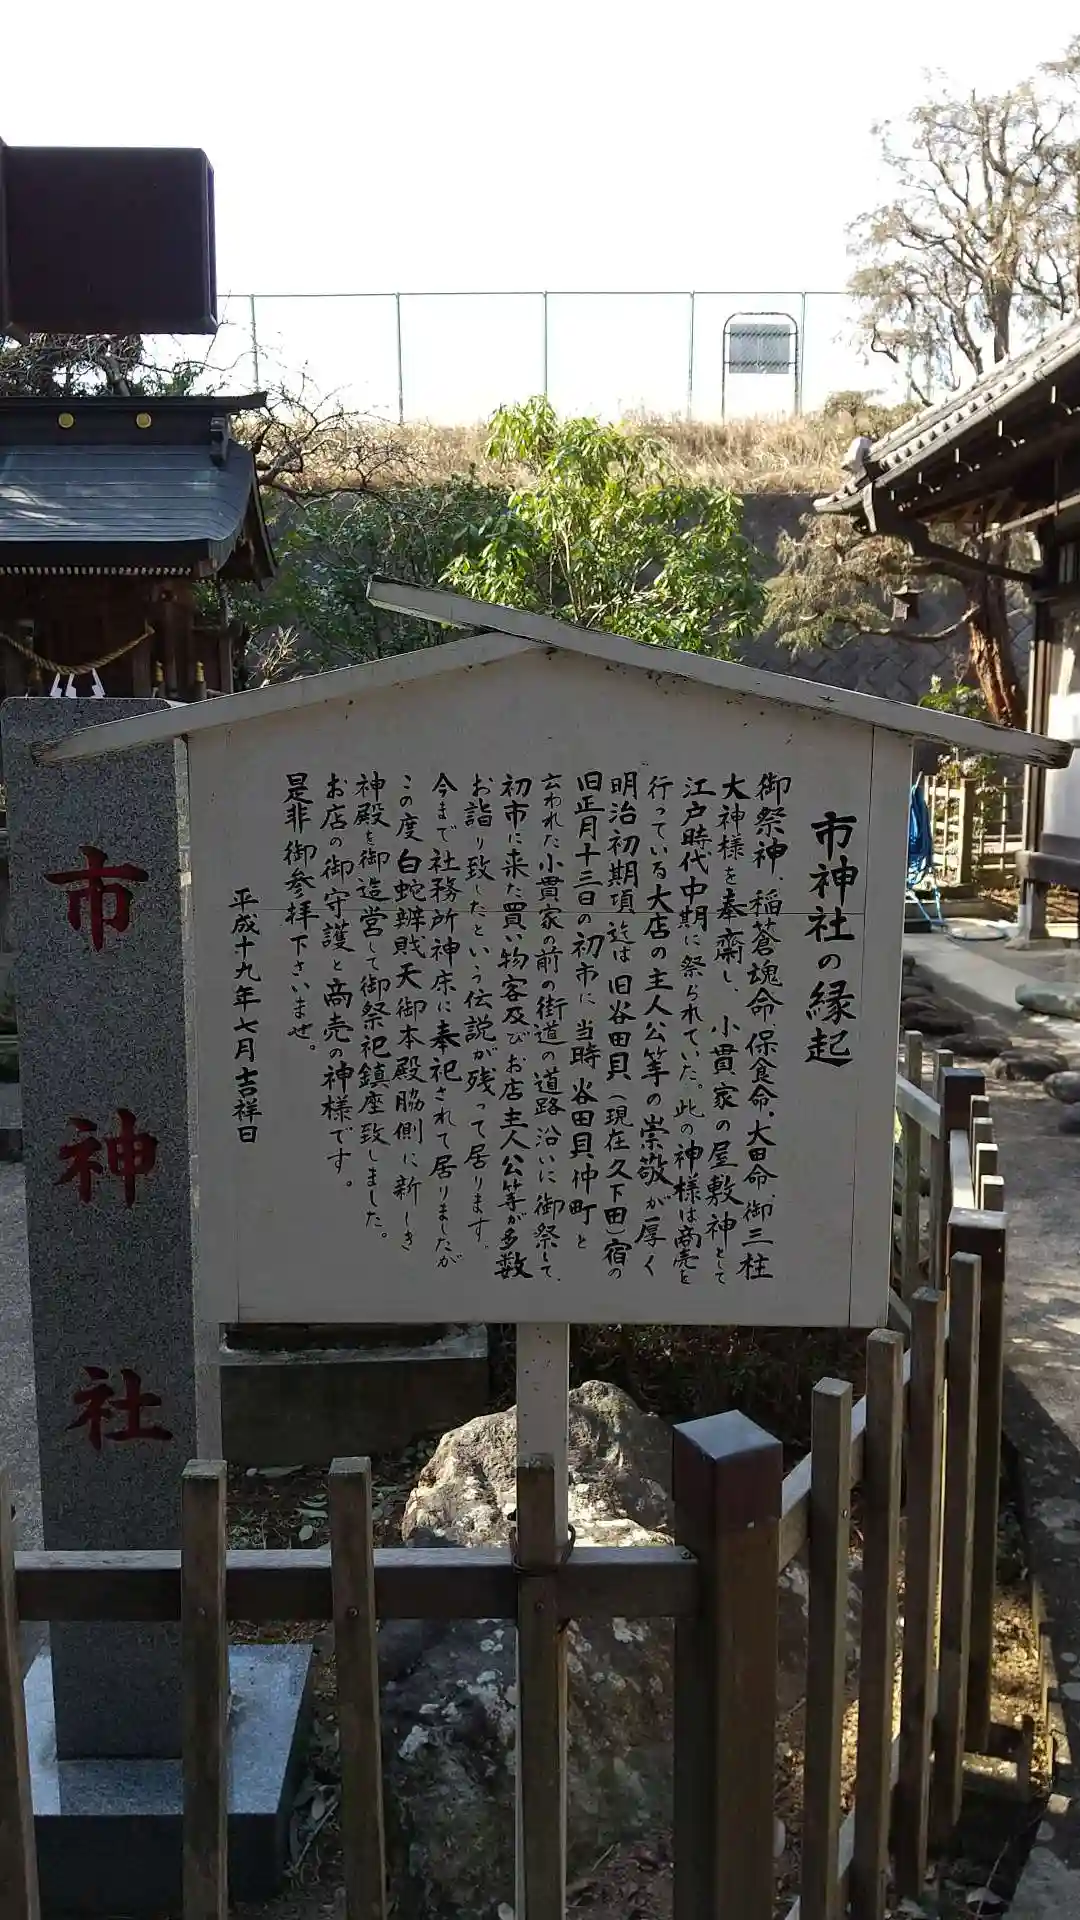 市神社の縁起
御祭神、稲蒼魂命、保食命、大田命、御三柱
大神様を奉齋し、小貫家の屋敷神として
江戸時代中期に祭られていた。此の神様は商売を
行っている大店の主人公等の崇敬が厚く
明治初期頃迄は旧谷田貝(現在久下田)宿の
旧正月十三日の初市に当時谷田貝仲町と
云われた小貫家の前の街道の道路沿いに御祭して、
初市に来た買い物客及びお店主人公等が多数
お詣り致したという伝説が残って居ります。
今まで社務所神床に奉祀されて居りましたが
この度白蛇辨戝天御本殿脇側に新しき
神殿を御造営して御祭祀鎮座致しました。
お店の御守護と商売の神様です。
是非御参拝下さいませ。
平成十九年七月吉祥日
市神社